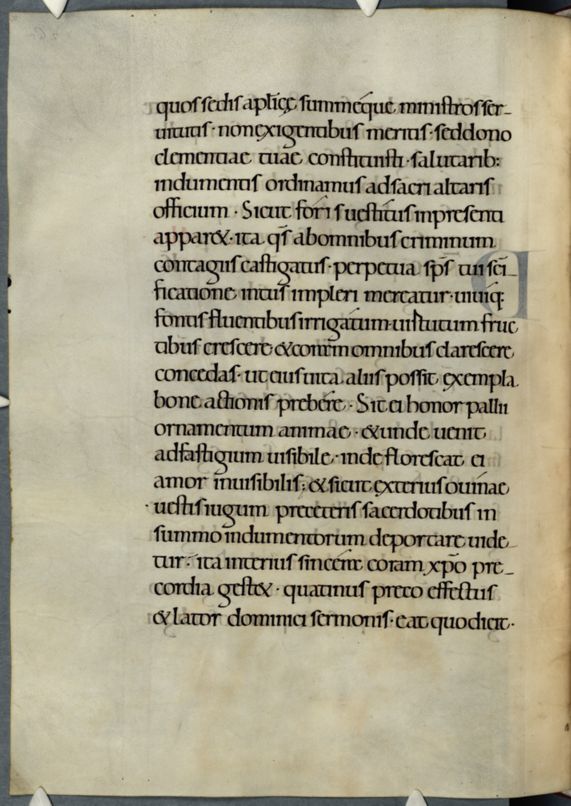 quos sedis aplicę summeque ministros ser-
uitutis · non exigentibus meritis · sed dono
clementiae tuae constituisti · salutarib:
indumentis ordinamus ad sacri altaris
officium · Sicut foris uestitus in presenti
apparet · ita qs ab omnibus criminum
contagiis castigatus · perpetua sps tui sci-
ficatione intus impleri mereatur · uiuiq:
fontis fluentibus irrigatum uirtutum fruc
tibus crescere & coram omnibus clarescere
concedas · ut eius uita aliis possit exempla
bone actionis prebere · Sit ei honor pallii
ornamentum animae · & unde uenit
ad fastigium uisibile · inde florescat ei
amor inuisibilis; & sicut exterius ouinae
uestis iugum pre ceteris sacerdotibus in
summo indumentorum deportare uide-
tur · ita interius sincere coram xpo pre-
cordia gestet · quatinus preco effectus
& lator dominici sermonis · eat quo dicit ·